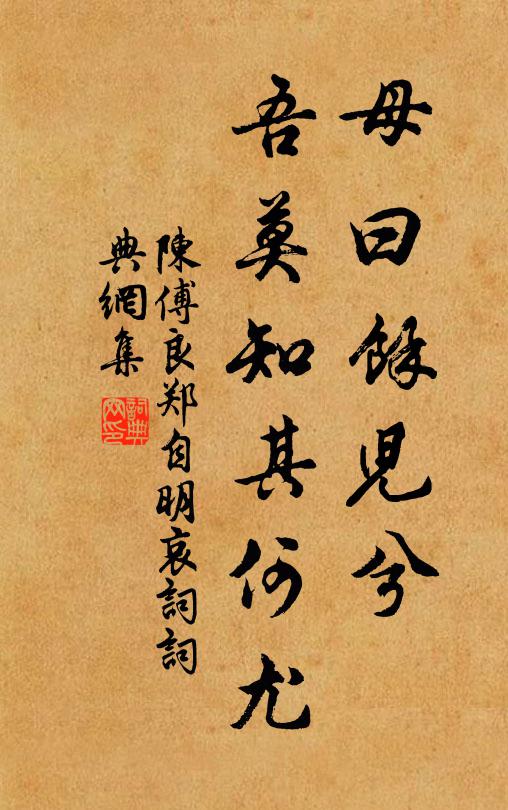 毋曰餘兒兮
吾莫知其何尤
陳傅良郑自明哀詞詞
典網集
詞典
网印